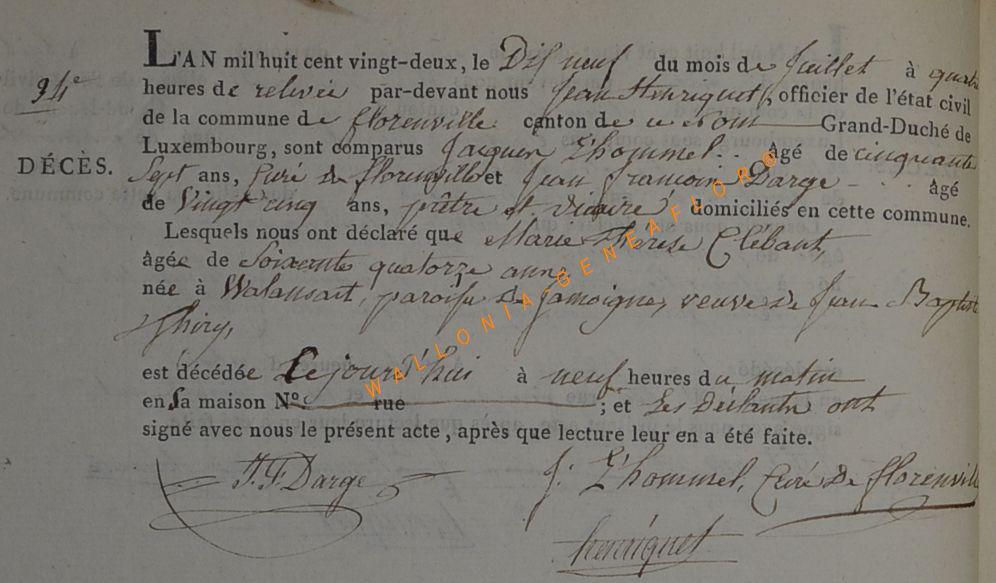 L'AN mil huit cent vingt-deux, le Dix neuf du mois de Juillet à quatre
94e
heures de relivée par-devant nous Jean Henriquet, officier de l'état civil
de la commune de florenville canton de ce nom Grand-Duché de
DÉCÈS.
Luxembourg, sont comparus Jacques L'hommel âgé de cinquante
Sept ans, Curé de florenville et Jean francois Darge âgé
de Vingt cinq ans, prêtre et vicaire domiciliés en cette commune.
Lesquels nous ont déclaré que Marie Thérese Clébant,
âgée de Soixante quatorze ans
née à Walansart, paroisse de Jamoigne, veuve de Jean Baptiste
Thiry,
est décédée Cejourd'hui à neuf heures du matin
en sa maison N° rue ; et Les Déclarants ont
signé avec nous le présent acte, après que lecture leur en a été faite.
J. F. Darge
J. L'hommel, Curé de florenville
henriquet
WALLONIA-GENEAFLOR©